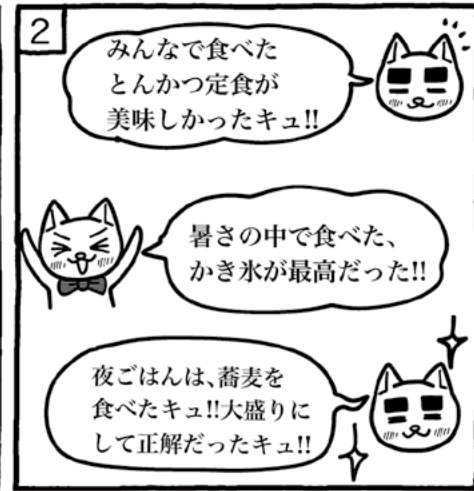 2
みんなで食べた
とんかつ定食が
美味しかったキュ!!
暑さの中で食べた、
かき氷が最高だった!!
夜ごはんは、蕎麦を
食べたキュ!!大盛りに
して正解だったキュ!!